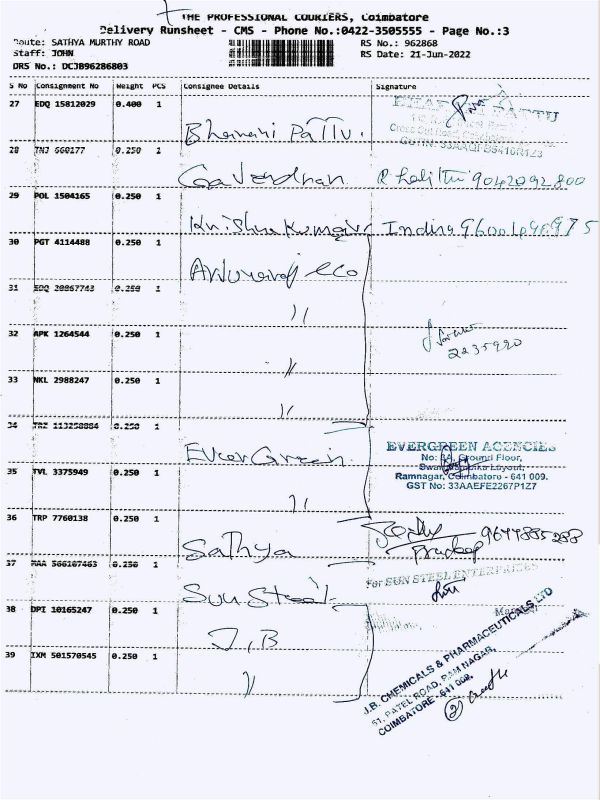 THE PROFESSIONAL COURIERS, Coimbatore
Delivery Runsheet - CMS - Phone No.:0422-3505555 - Page No.:3
Route: SATHYA MURTHY ROAD
RS No.: 962868
Staff: JOHN
RS Date: 21-Jun-2022
DRS No.: DCJB96286803
S No Consignment No Weight PCS Consignee Details Signature
27 EDQ 15812029 0.400 1
Bhavani Pattu.
PATTU
28 TNJ 660177 0.250 1
Goverdhan 9042092800
29 POL 1504165 0.250 1
Krishna Kumar Indira
30 PGT 4114488 0.250 1
eco
31 EDQ 20867743 0.250 1
"
32 APK 1264544 0.250 1
2235990
"
33 NKL 2988247 0.250 1
"
34 0.250 1
Ever Green
EVERGREEN AGENCIES
No: Ground Floor,
Layout,
Ramnagar, Coimbatore - 641 009.
GST No: 33AAEFE2267P1Z7
35 TVL 3375949 0.250 1
"
36 TRP 7760138 0.250 1
Sathya
Pradeep
37 MAA 566107463 0.250 1
Sun Steel
For SUN STEEL ENTERPRIZES
38 DPI 10165247 0.250 1
J.B
39 IXM 501570545 0.250 1
"
J.B. CHEMICALS & PHARMACEUTICALS LTD
51, PATEL ROAD, RAM NAGAR,
COIMBATORE - 641 009.